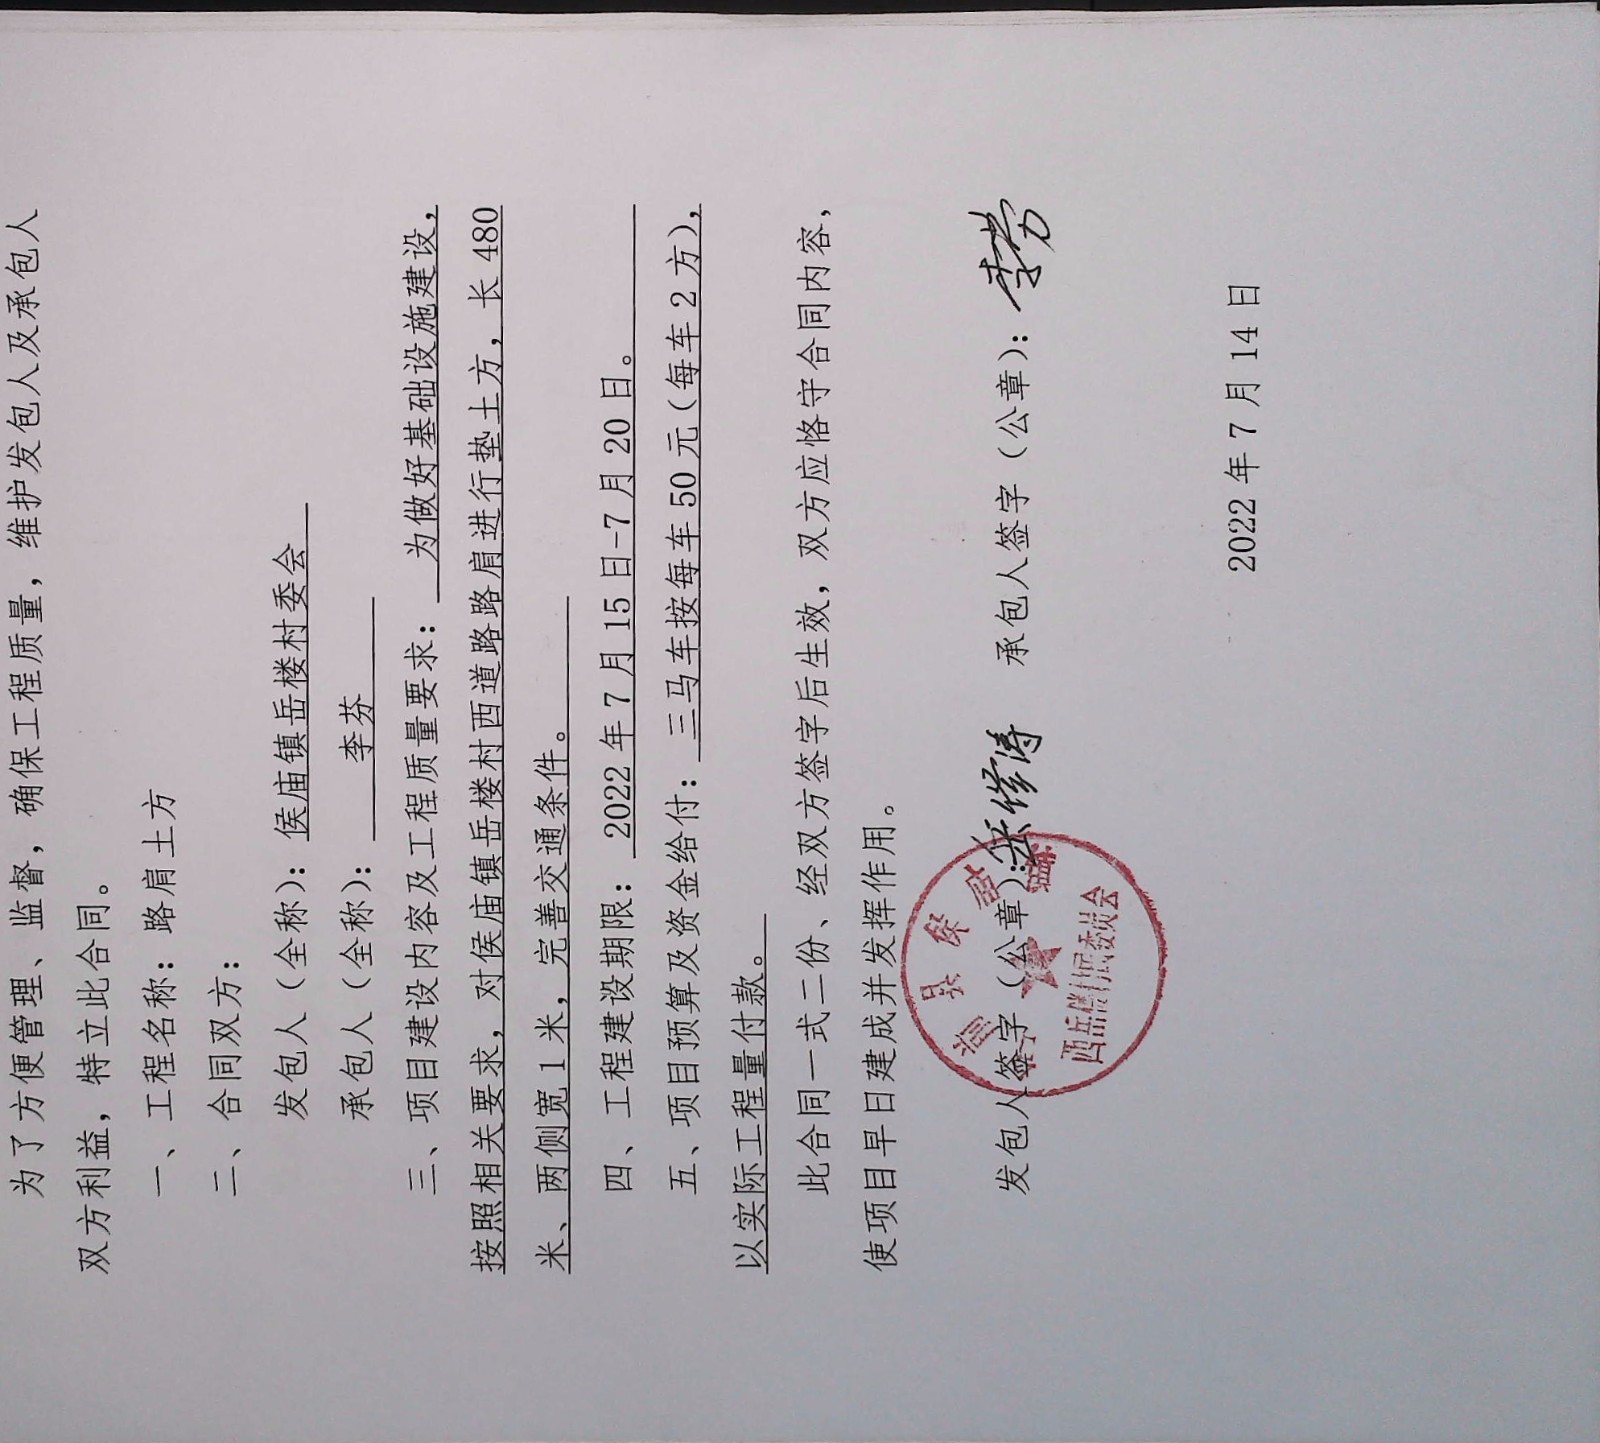 为了方便管理、监督，确保工程质量，维护发包人及承包人
双方利益，特立此合同。
一、工程名称：路肩土方
二、合同双方：
发包人（全称）：侯庙镇岳楼村委会
承包人（全称）：李芬
三、项目建设内容及工程质量要求：为做好基础设施建设，
按照相关要求，对侯庙镇岳楼村西道路路肩进行垫土方，长 480
米、两侧宽 1 米，完善交通条件。
四、工程建设期限：2022 年 7 月 15 日-7 月 20 日。
五、项目预算及资金给付：三马车按每车 50 元（每车 2 方），
以实际工程量付款。
此合同一式二份、经双方签字后生效，双方应恪守合同内容，
使项目早日建成并发挥作用。
发包人签字（公章）：岳修涛 承包人签字（公章）：李芬
县侯庙镇
村民委员会
2022 年 7 月 14 日